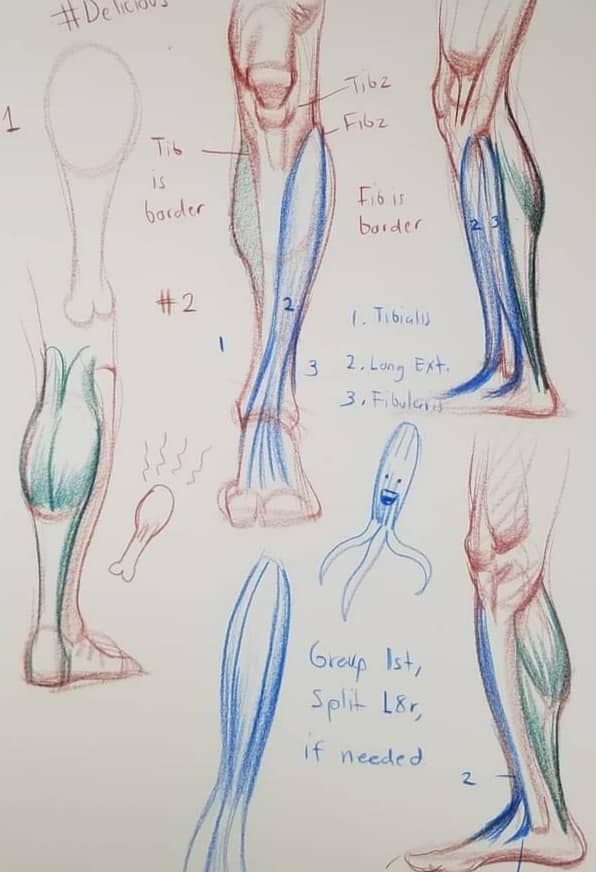 #Delicious
1
Tibz
Fibz
Tib
is
border
Fib is
border
#2
2
1
3
2 3
1. Tibialis
2. Long Ext.
3. Fibularis
Group 1st,
Split L8r,
if needed
2